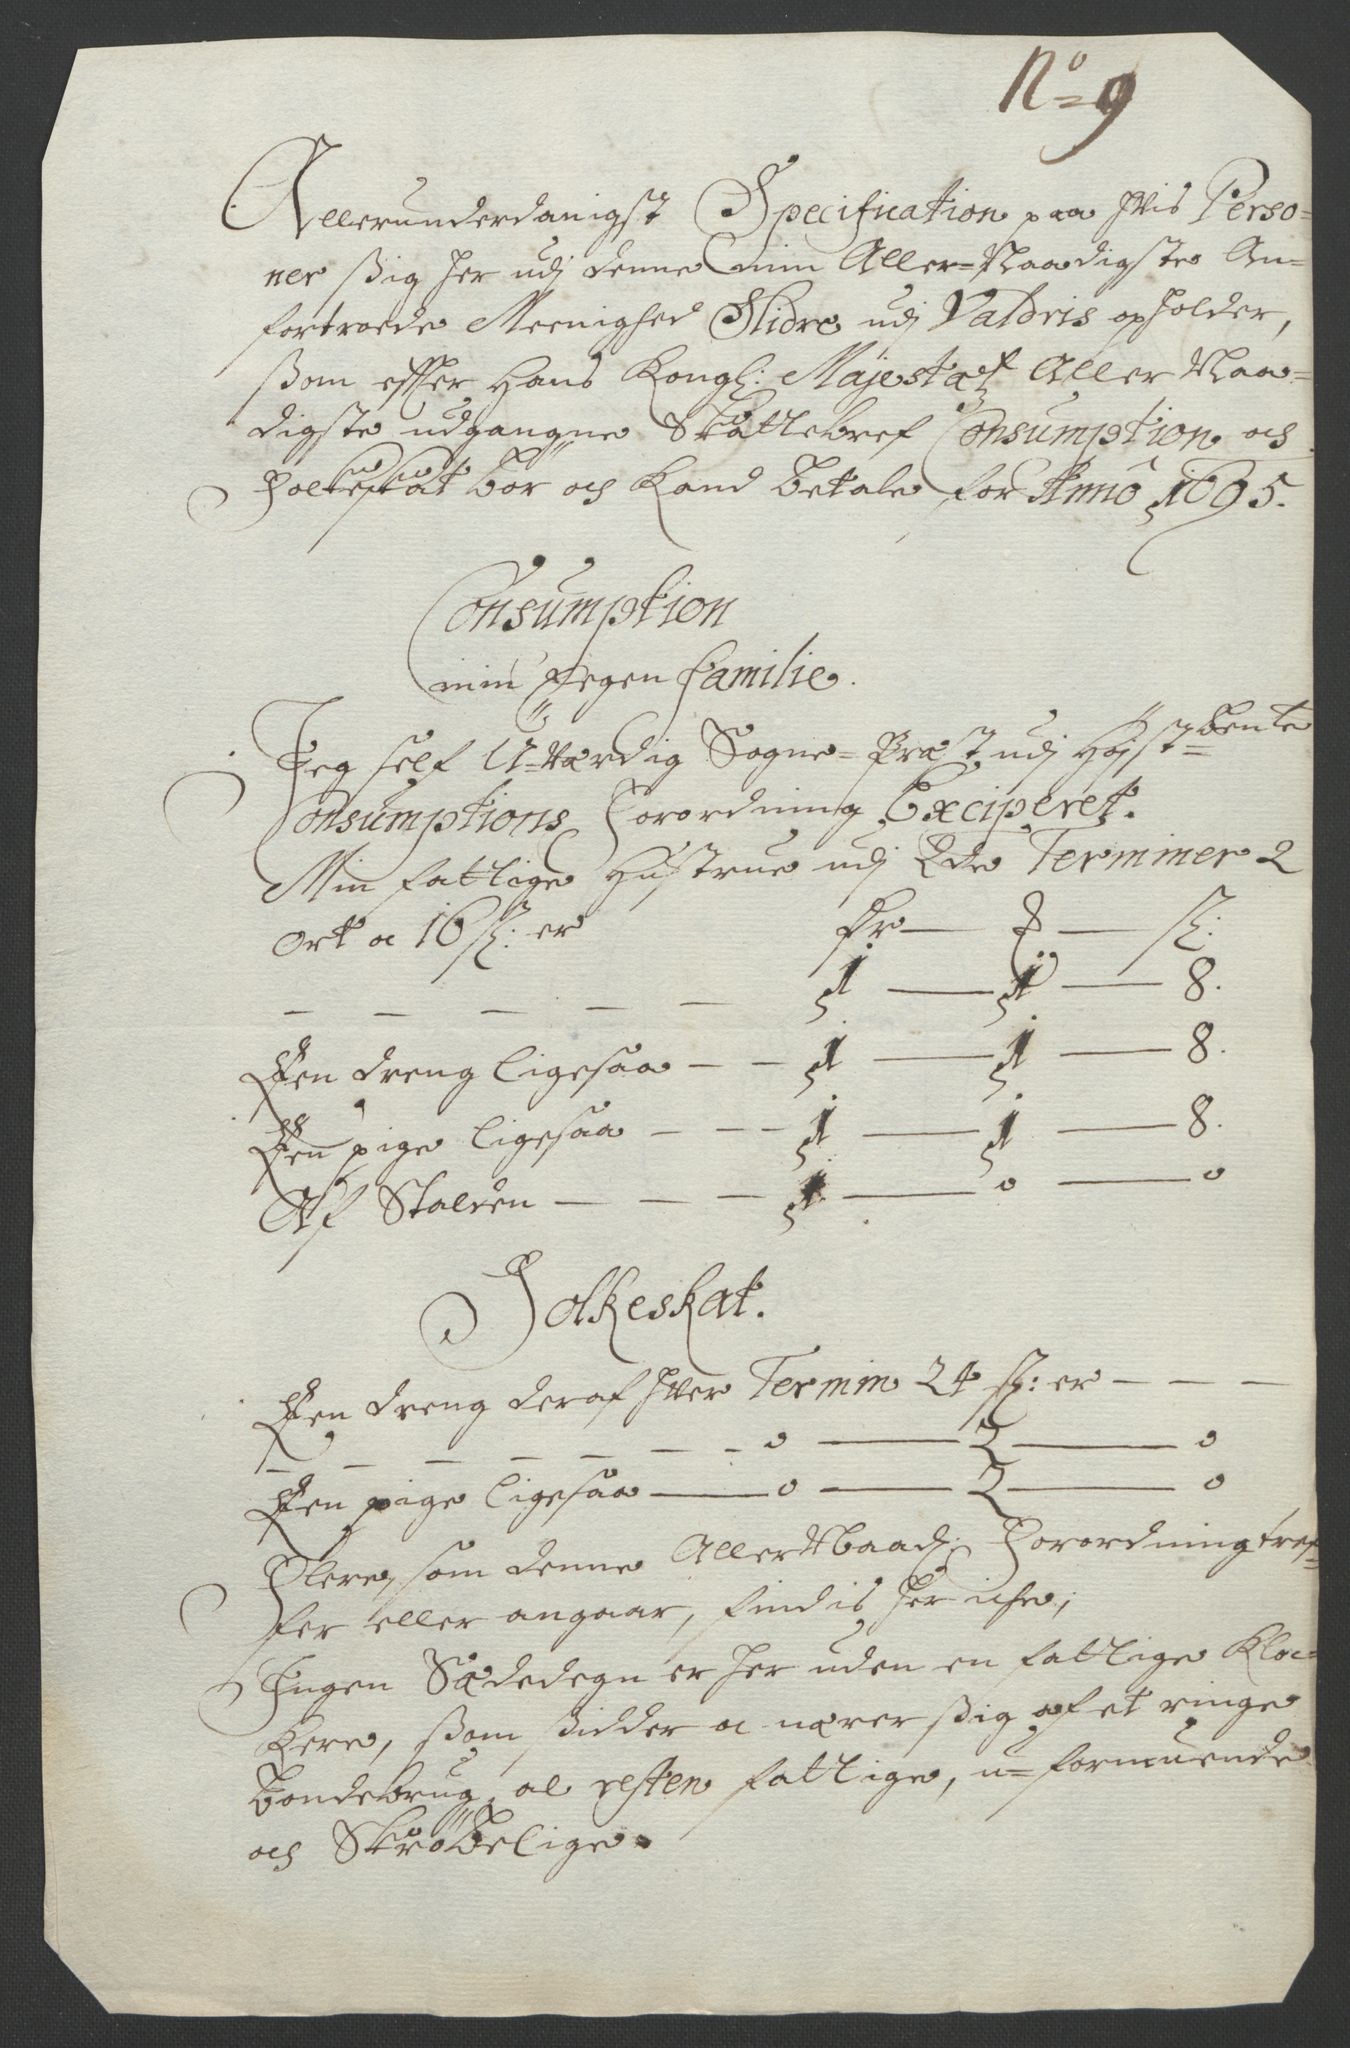 No 9
Allerunderdanigst Specification paa hvis Perso=
ner sig her udj denne min Aller=Naadigste An=
fortroede Meenighed Slidre udj Valdris opholder,
som effter Hans Kongl: Majestæt Aller Naa=
digste udgangne Skattebref Consumption och
Folkeskat bør och kand betale for Anno 1695.
Consumption
min Eegen familie.
Jeg self U=værdig Sogne=Præst udj Højst=bente
Consumptions Forordning Exciperet.
Min fattige Hustrue udj 2de Terminer 2
ort a 16 s: er Pr — — s:
— — — — — 1 — 1 — 8.
Een dreng ligesaa — — 1 — 1 — 8.
Een pige ligesaa — — — 1 — 1 — 8.
Af Stalden — — — 1 — 0 — 0
Folkeskat.
Een dreng deraf hver Termin 24 s: er — — —
— — — — — — 0 — 2 — 0
Een pige ligesaa — 0 — 2 — 0
Flere, som denne AllerNaad: Forordning tref=
fer eller angaar, findis her iche;
Ingen Sædedegn er her uden en fattige Kloc=
kere, som sidder a nærer sig af et ringe
bondebrug, al resten fattige, u=formuende
och Skrøbelige.